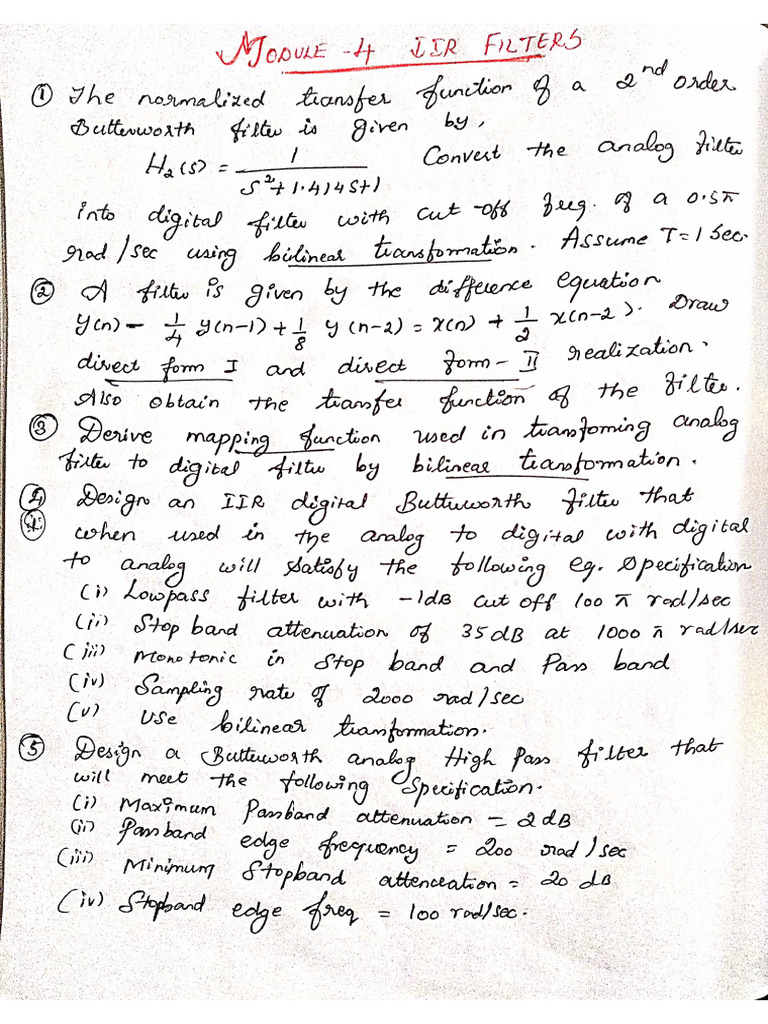 MODULE -4 IIR FILTERS
① The normalized transfer function of a 2nd order
Butterworth filter is given by,
H₂(s) = 1 / s²+1.414s+1 Convert the analog filter
into digital filter with cut-off freq. of a 0.5π
rad/sec using bilinear transformation. Assume T=1 sec.
② A filter is given by the difference equation
y(n) - 1/4 y(n-1) + 1/8 y(n-2) = x(n) + 1/2 x(n-2). Draw
direct form I and direct form - II realization.
Also obtain the transfer function of the filter.
③ Derive mapping function used in transfoming analog
filter to digital filter by bilinear transformation.
④ Design an IIR digital Butterworth filter that
when used in the analog to digital with digital
to analog will satisfy the following eg. specification
(i) Lowpass filter with -1dB cut off 100 π rad/sec
(ii) Stop band attenuation of 35 dB at 1000 π rad/sec
(iii) Monotonic in stop band and Pass band
(iv) Sampling rate of 2000 rad/sec
(v) Use bilinear transformation.
⑤ Design a Butterworth analog High Pass filter that
will meet the following Specification.
(i) Maximum Passband attenuation = 2 dB
(ii) Passband edge frequency = 200 rad/sec
(iii) Minimum Stopband attenuation = 20 dB
(iv) Stopband edge freq = 100 rad/sec.